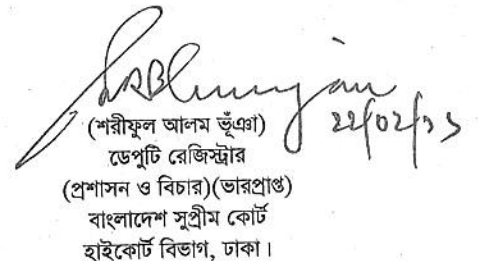 (শরীফুল আলম ভূঁঞা)
২২/০২/২১
ডেপুটি রেজিস্ট্রার
(প্রশাসন ও বিচার)(ভারপ্রাপ্ত)
বাংলাদেশ সুপ্রীম কোর্ট
হাইকোর্ট বিভাগ, ঢাকা।